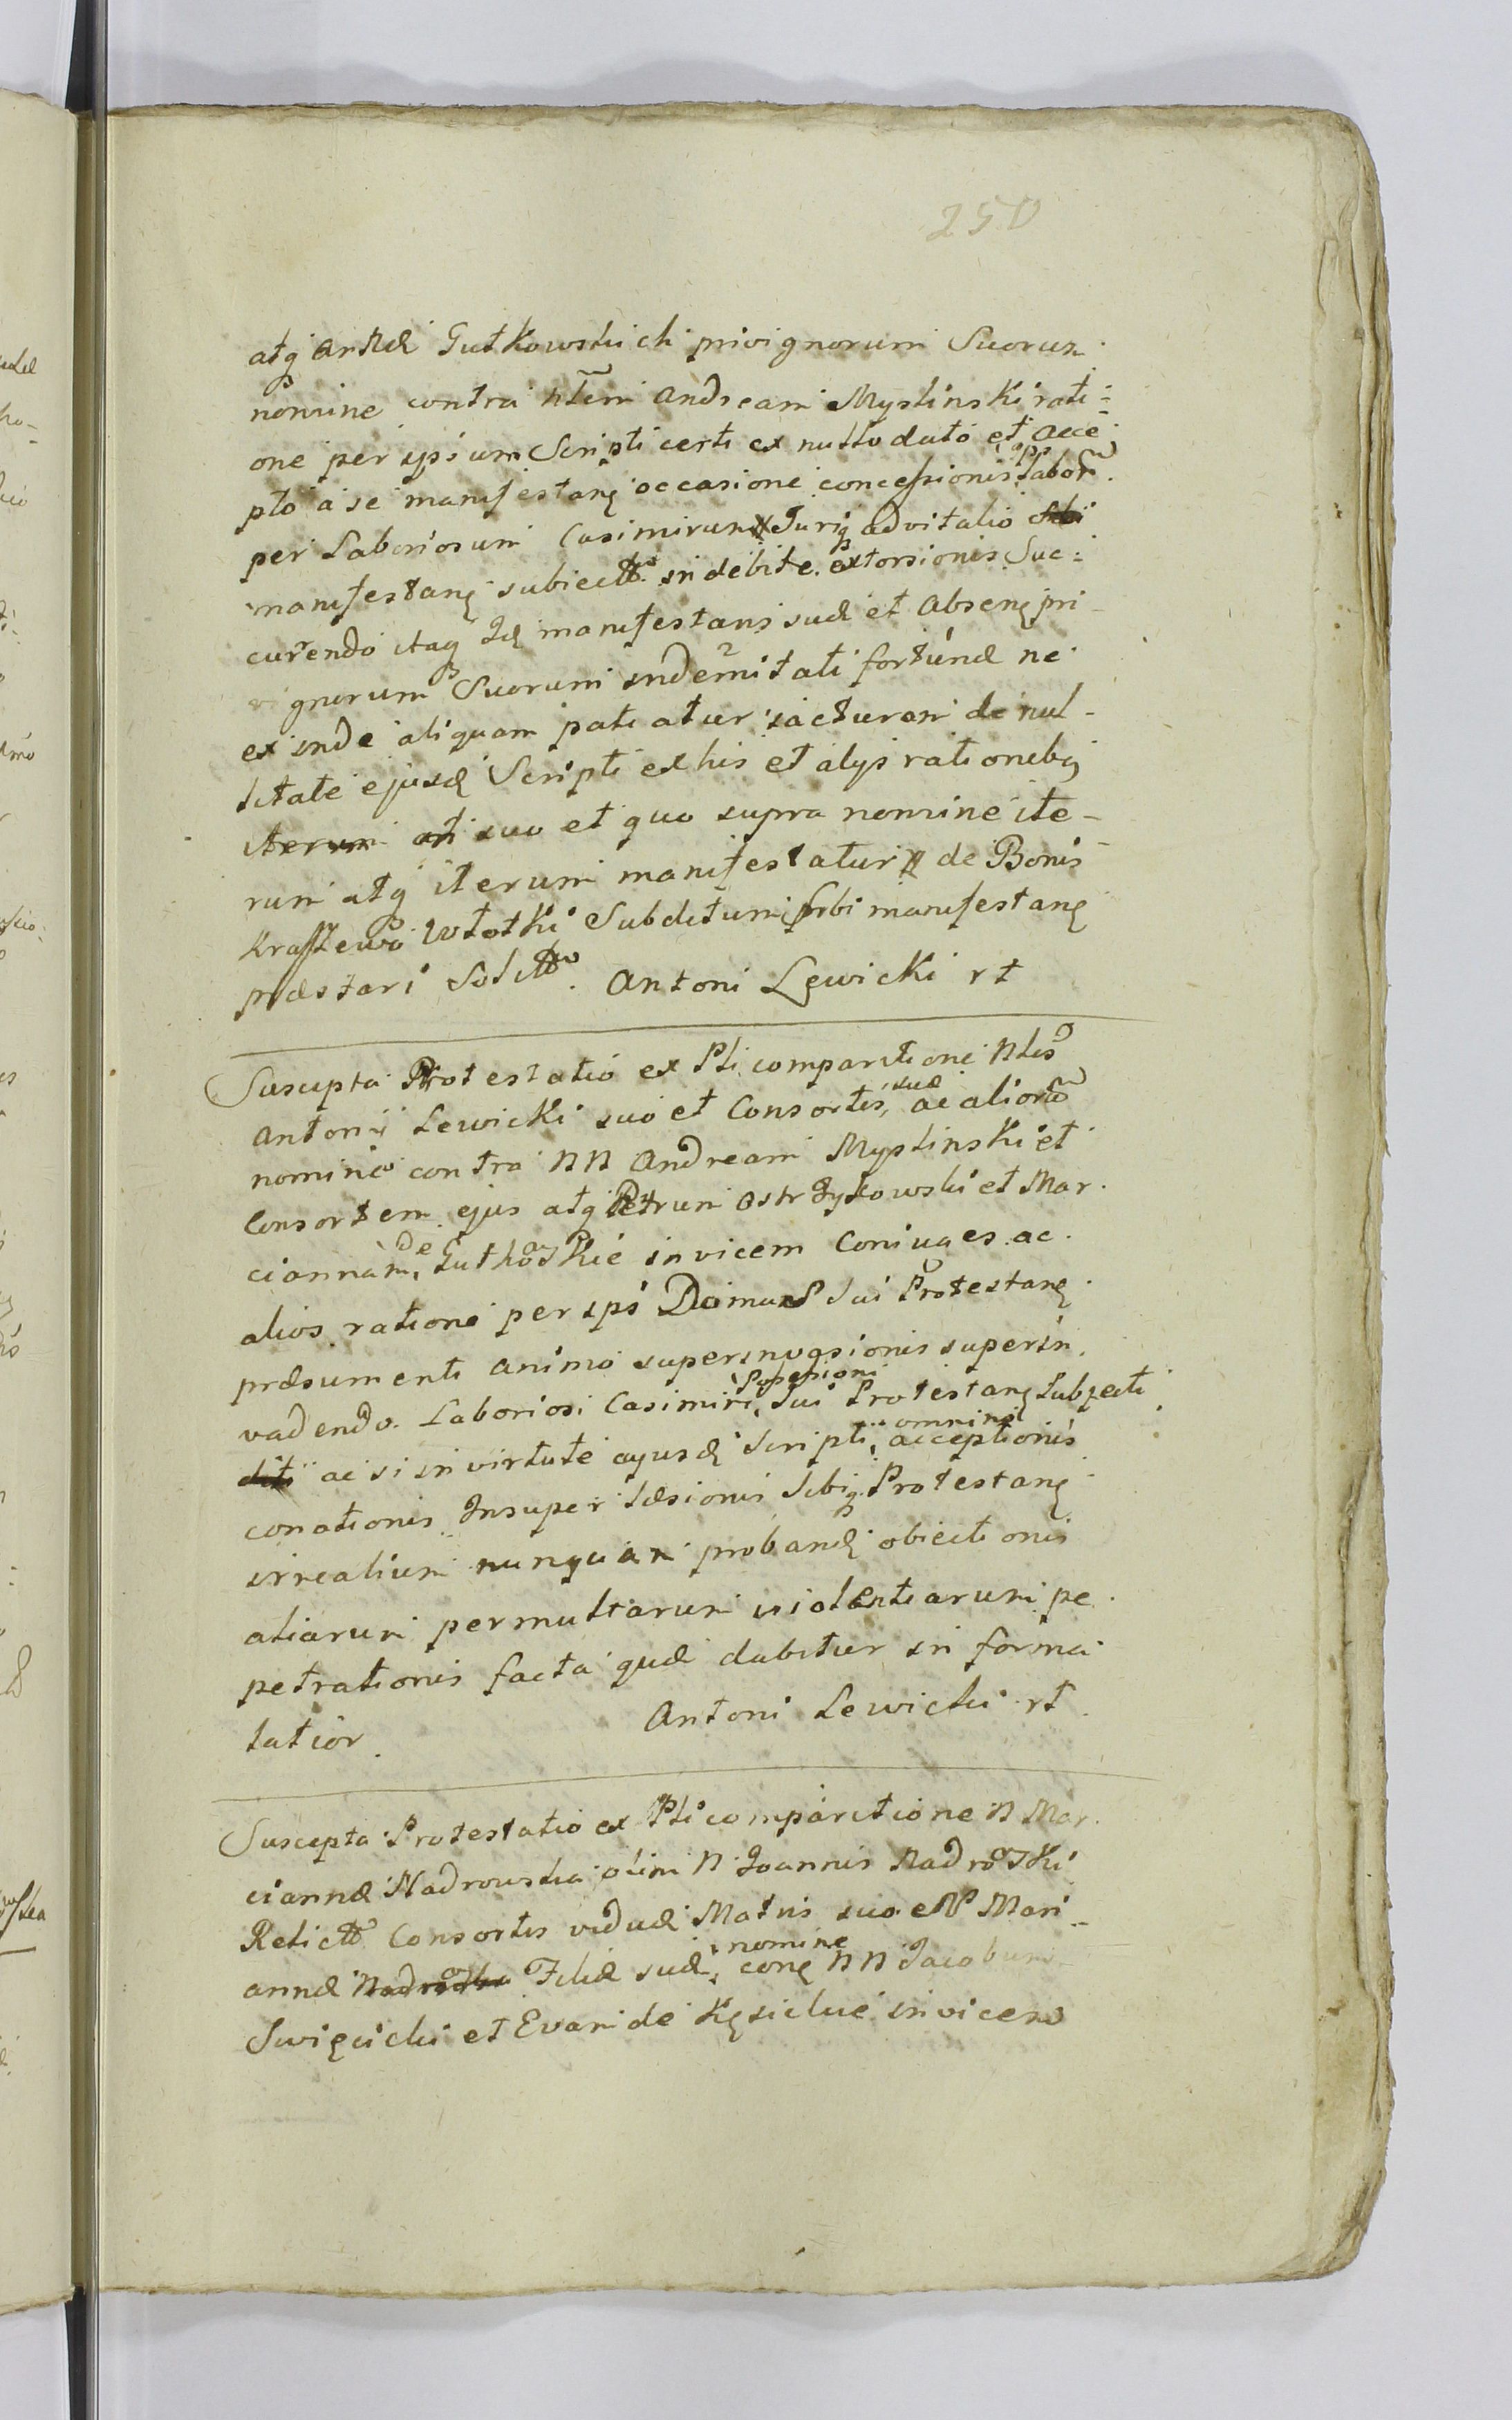 250
atq Andr Gutkowskich privignorum Suorum
nomine contra Nlem Andream Myslinski rati=
one per ipsum Scripti certi ex nullo dato et acce
pto a se manifestane occasione concessionis labor
per Laboriosum Casimirum Juriq advitalio sibi
manifestane subiectt indebite extorsionis Suc=
curendo itaq Id manifestans suæ et Absene pri
vignorum Suorum indemnitati fortunæ ne
ex inde aliquam patiatur iacturam de nul-
litate ejusd Scripti ex his et alys rationebq
iterum suo et quo supra nomine ite-
rum atq iterum manifestatur de Bonis
Kraszewo Wtotki Subditum sibi manifestane
præstari Solitt. Antoni Lewicki rt
Suscepta Protestatio ex Pli comparitione Nlis
Antonii Lewicki suo et Consortis, suæ ac aliorũ
nomine contra NN Andream Myslinski et
Consortem ejus atq Petrum Ostrzykowski et Mar
ciannam, de Gutkoskie invicem Coniuges ac
alios ratione per ipsũ Domus Sui Protestane
præsumenti animo superinvasionis superin
vadendo Laboriosi Casimiri, Possesioni Sui Protestane Subjecti
diti ac si in virtute cujusd Scripti, omnino acceptionis
conationis Insuper læsionis Sibiq Protestane
irrealium nunquam proband obiectionis
aliarum permultarum violentiarum pe
petrationis facta quæ dabitur in forma
latior Antoni Lewicki rt
Suscepta Protestatio ex Pli comparitione N Mar
ciannæ Nadrowska olim N Joannis Nadroski
Relictt Consortis viduæ Matris suo et N Mari-
annæ Nadroska Filiæ suæ, nomine cone NN Jacobum
Swięcicki et Evam de Kęsickie invicem